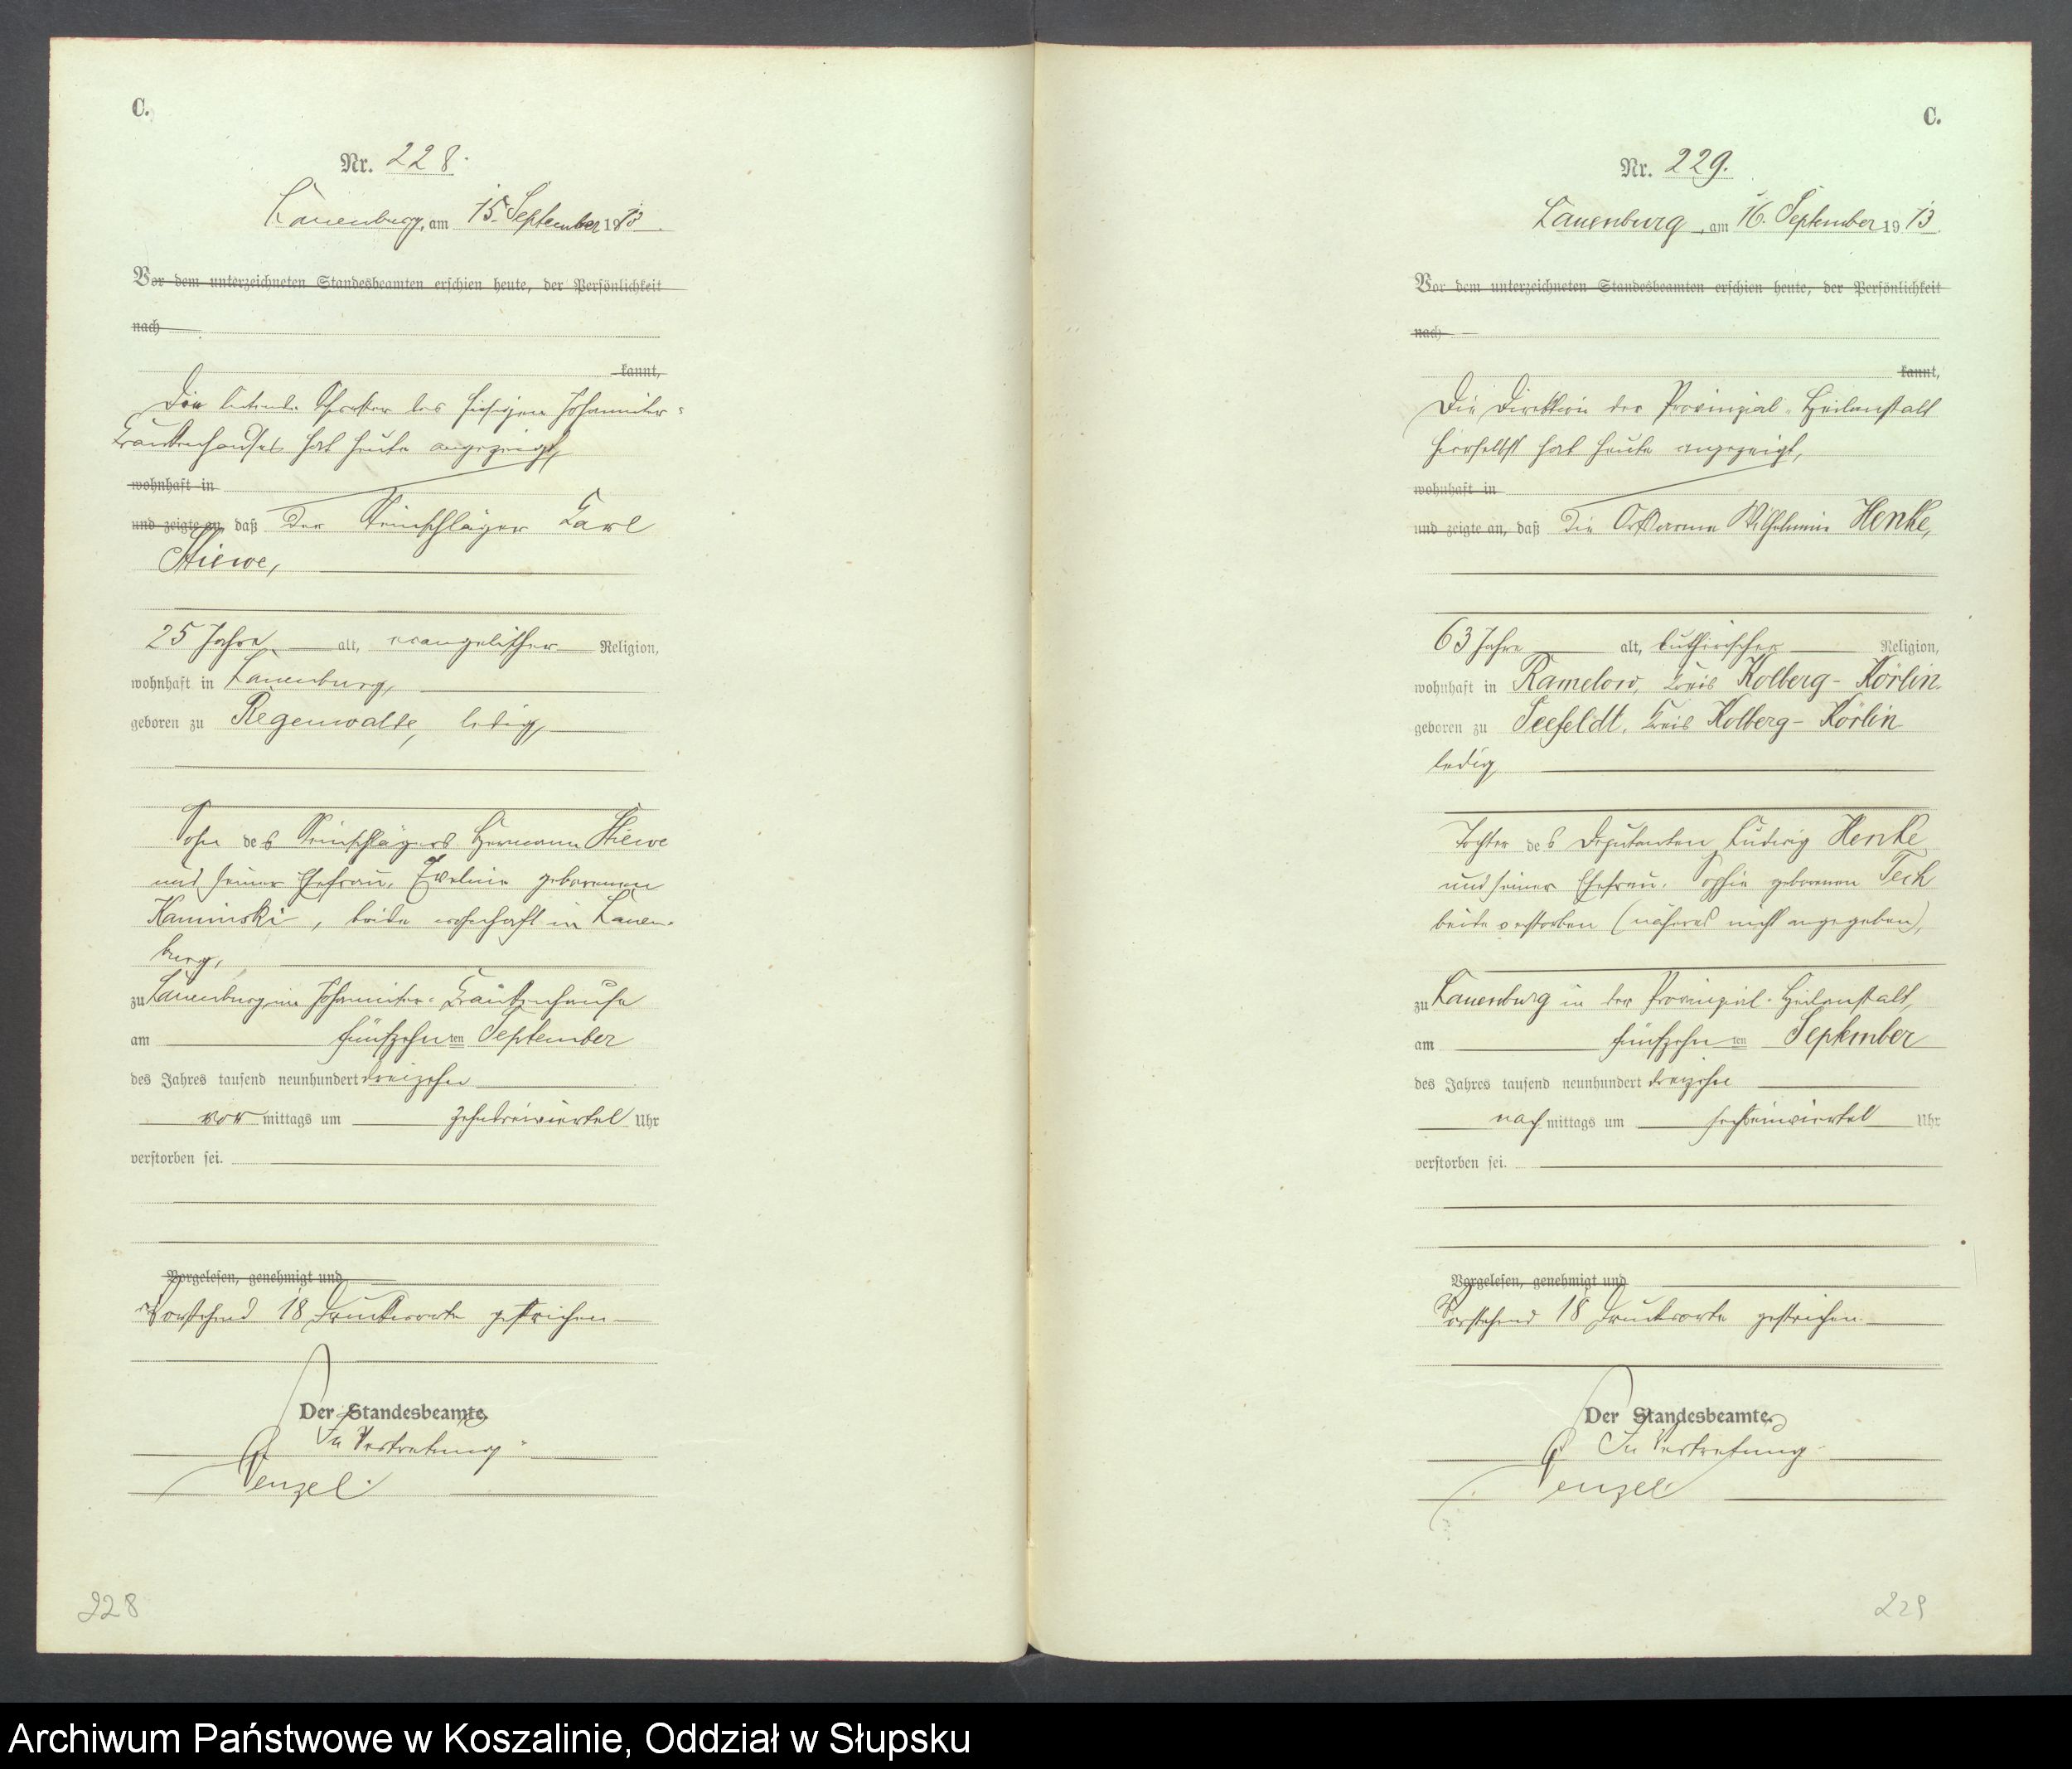 C.
Nr. 228.
Lauenburg, am 15. September 1913.
Vor dem unterzeichneten Standesbeamten erschien heute, der Persönlichkeit
nach
kannt,
Die leitende Schwester des hiesigen Johanniter-
Krankenhauses hat heute angezeigt,
wohnhaft in
und zeigte an, daß der Steinschläger Carl
Stiewe,
25 Jahre alt, evangelischer Religion,
wohnhaft in Lauenburg,
geboren zu Regenwalde, ledig,
Sohn des Steinschlägers Hermann Stiewe
und seiner Ehefrau, Eveline geborenen
Kaminski, beide wohnhaft in Lauen-
burg,
zu Lauenburg im Johanniter-Krankenhause
am fünfzehnten September
des Jahres tausend neunhundert dreizehn
vormittags um zehndreiviertel Uhr
verstorben sei.
Vorgelesen, genehmigt und
Vorstehend 18 Druckworte gestrichen
Der Standesbeamte.
In Vertretung
Wenzel.
228
C.
Nr. 229.
Lauenburg, am 16. September 1913.
Vor dem unterzeichneten Standesbeamten erschien heute, der Persönlichkeit
nach
kannt,
Die Direktion der Provinzial-Heilanstalt
hierselbst hat heute angezeigt,
wohnhaft in
und zeigte an, daß die Ortsarme Wilhelmine Henke,
63 Jahre alt, lutherischer Religion,
wohnhaft in Ramelow, Kreis Kolberg-Körlin.
geboren zu Seefeldt, Kreis Kolberg-Körlin
ledig
Tochter des Deputanten Ludwig Henke
und seiner Ehefrau, Sophie geborenen Tech
beide verstorben (näheres nicht angegeben),
zu Lauenburg in der Provinzial-Heilanstalt,
am fünfzehnten September
des Jahres tausend neunhundert dreizehn
nachmittags um sechseinviertel Uhr
verstorben sei.
Vorgelesen, genehmigt und
Vorstehend 18 Druckworte gestrichen.
Der Standesbeamte.
In Vertretung
Wenzel
229
Archiwum Państwowe w Koszalinie, Oddział w Słupsku